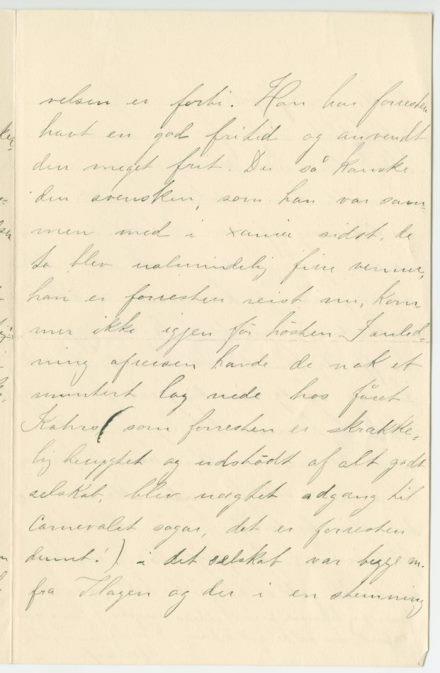 velsen er forbi. Han har forresten
havt en god fritid og anvendt
den meget frit. Du så kanske
den svensken, som han var sam-
men med i sidst, de
to blev ualmindelig fine venner,
han er forresten reist nu, kom
mer ikke igjen før høsten. I anled-
ning afreisen havde de nok et
muntert lag nede hos
Kahrs (som forresten er skrække-
lig berygtet og udstödt af alt godt
selskab, blev nægtet adgang til
Carnevalet sogar, det er forresten
dumt!) i det selskab var begge
fra Hagen og der i en stemning